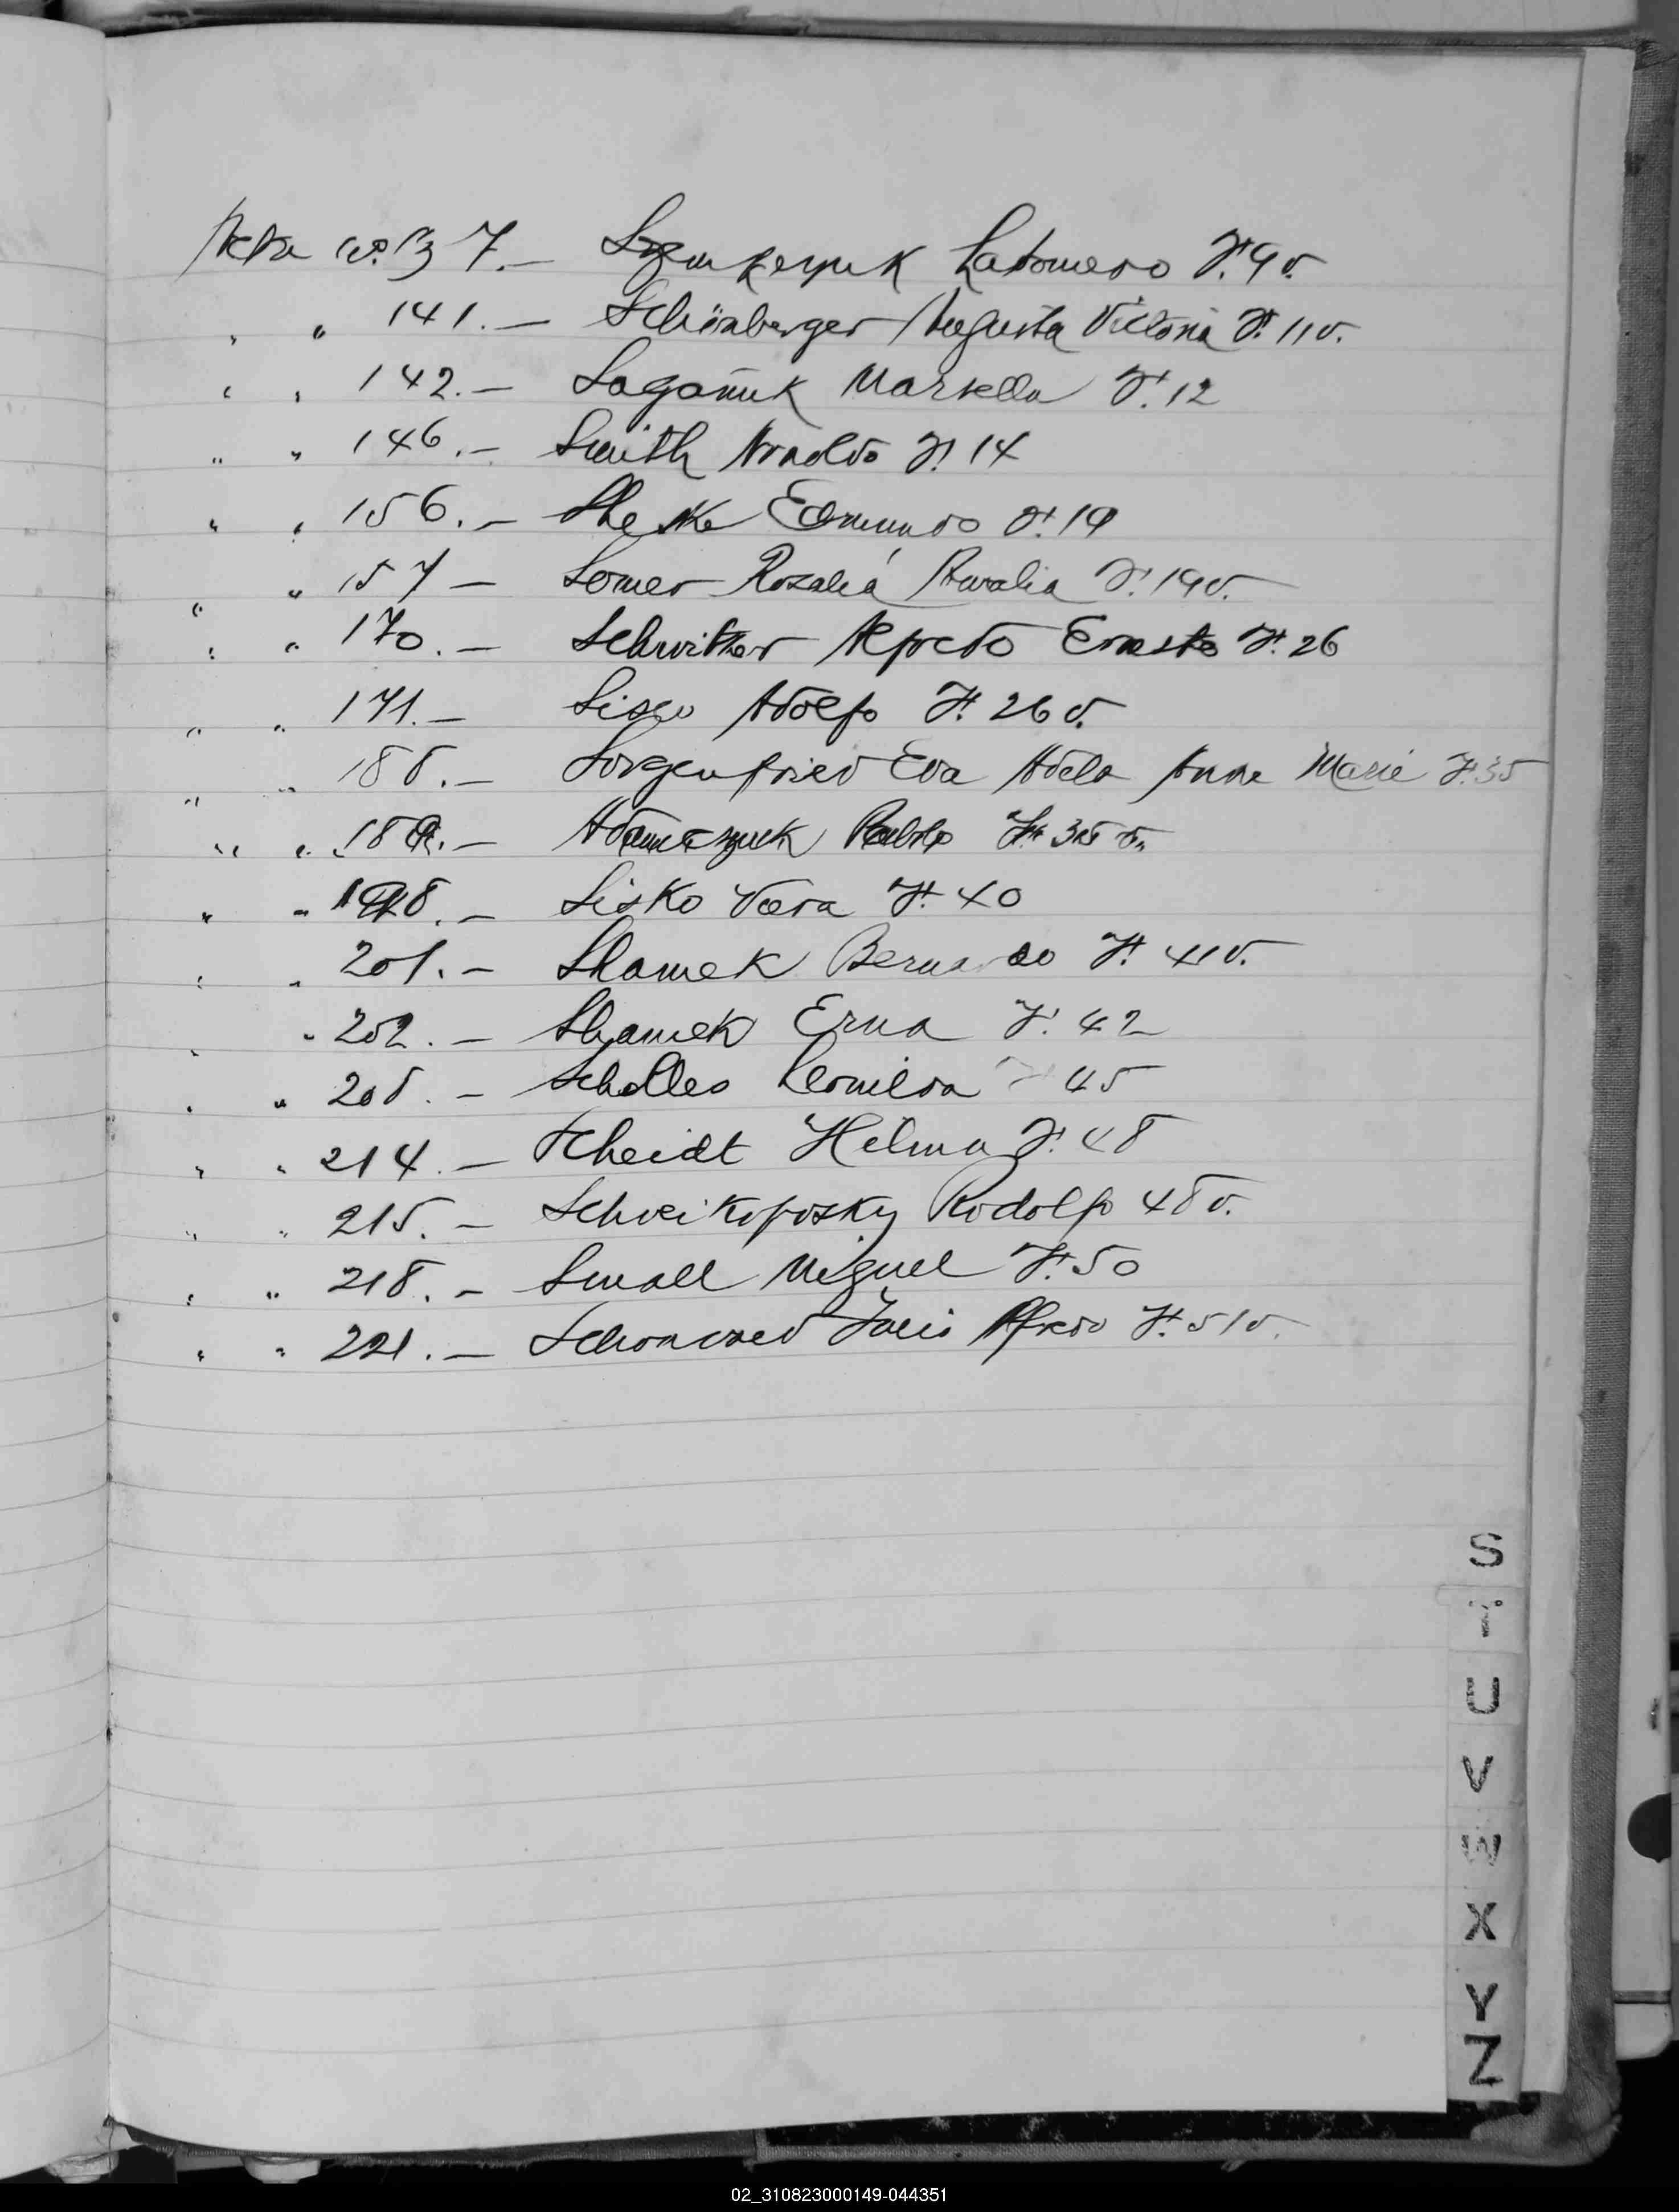 Acta No. 137.— Ladomero F. 9v.
" " 141.— Schönberger Augusta Victoria F. 11v.
" " 142.— Sagañuk Marsella F. 12
" " 146.— Smith Arnoldo F. 14
" " 156.— Edmundo F. 19
" " 157— Somer Rosalia Amalia F. 19v.
" " 170.— Schvitker Alfredo Ernesto F. 26
" " 171.— Adolfo F. 26v.
" " 188.— Sorgenfried Eva Adela Anna Marie F. 35
" " 189.— Adamczuck Pablo F. 35v.
" " 198.— Sisko Vera F. 40
" " 201.— Shamek Bernardo F. 41v.
" " 202.— Shamek Erna F. 42
" " 208.— Scholles Leonilda 45
" " 214.— Scheidt Hilma F. 48
" " 215.— Rodolfo 48v.
" " 218.— Small Miguel F. 50
" " 221.— Julio Alfredo F. 51v.
S
T
U
V
W
X
Y
Z
02_310823000149-044351